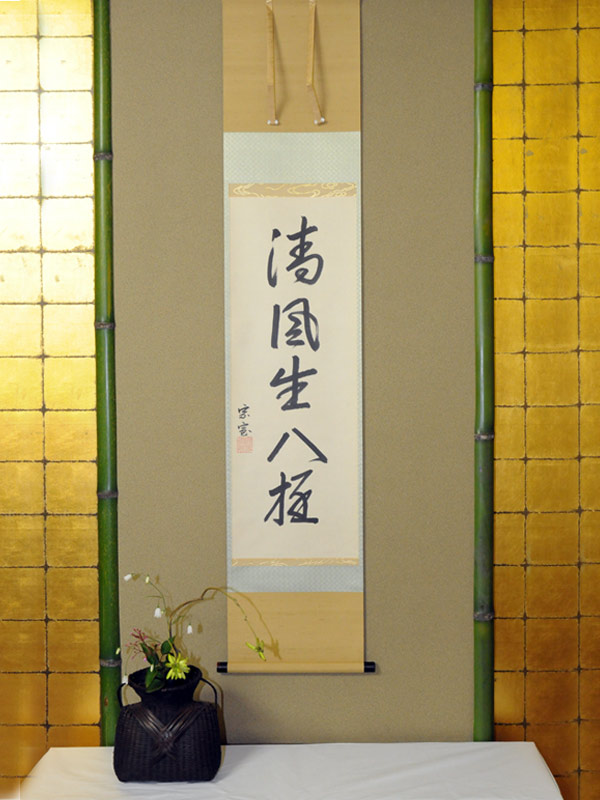 清風生八極
宗完